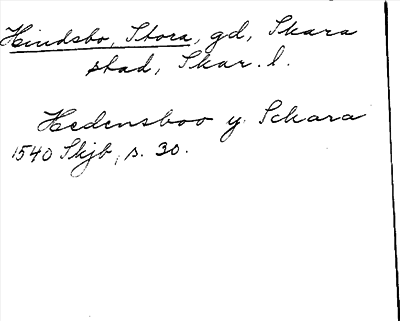 Hindsbo, Stora, gd, Skara
stad, Skar. l.
Hedensboo y Schara
1540 Skjb, s. 30.